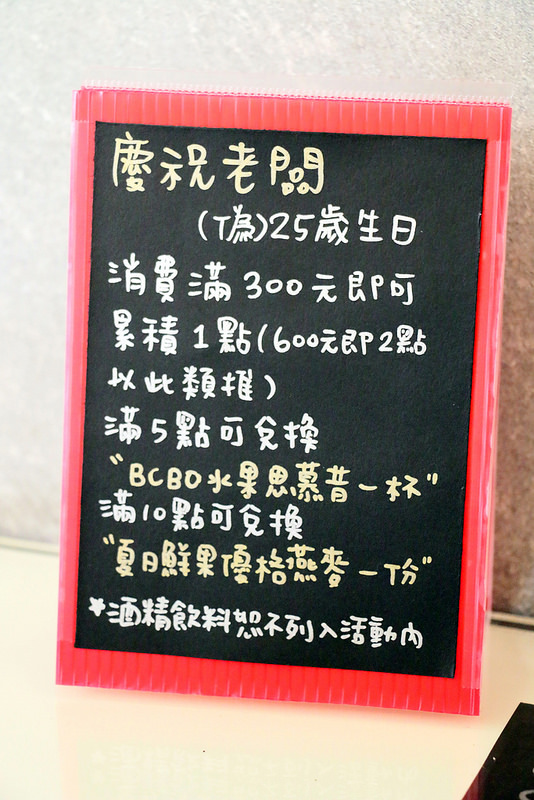 慶祝老闆
(偽)25歲生日
消費滿300元即可
累積1點(600元即2點
以此類推)
滿5點可兌換
"BCBO水果思慕昔一杯"
滿10點可兌換
"夏日鮮果優格燕麥一份"
*酒精飲料恕不列入活動內